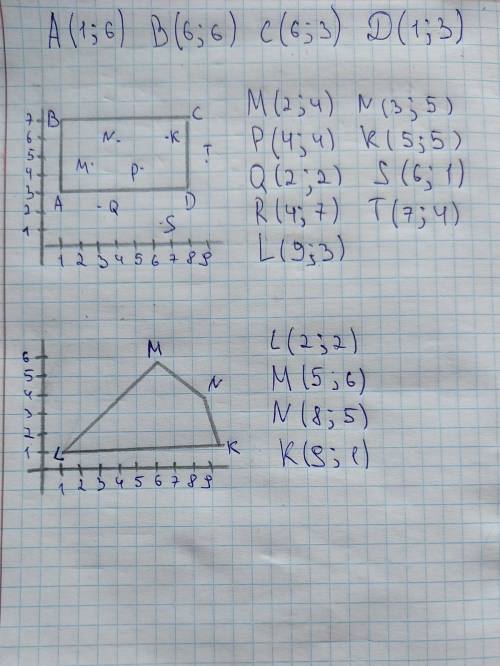 A(1;6) B(6;6) C(6;3) D(1;3)
M(2;4) N(3;5)
P(4;4) K(5;5)
Q(2;2) S(6;1)
R(4;7) T(7;4)
L(9;3)
7 B C
6 N K
5 T
4 M P
3
A D
2 Q
1 S
1 2 3 4 5 6 7 8 9
L(2;2)
M(5;6)
N(8;5)
K(9;1)
M
6
5 N
4
3
2
1 L K
1 2 3 4 5 6 7 8 9